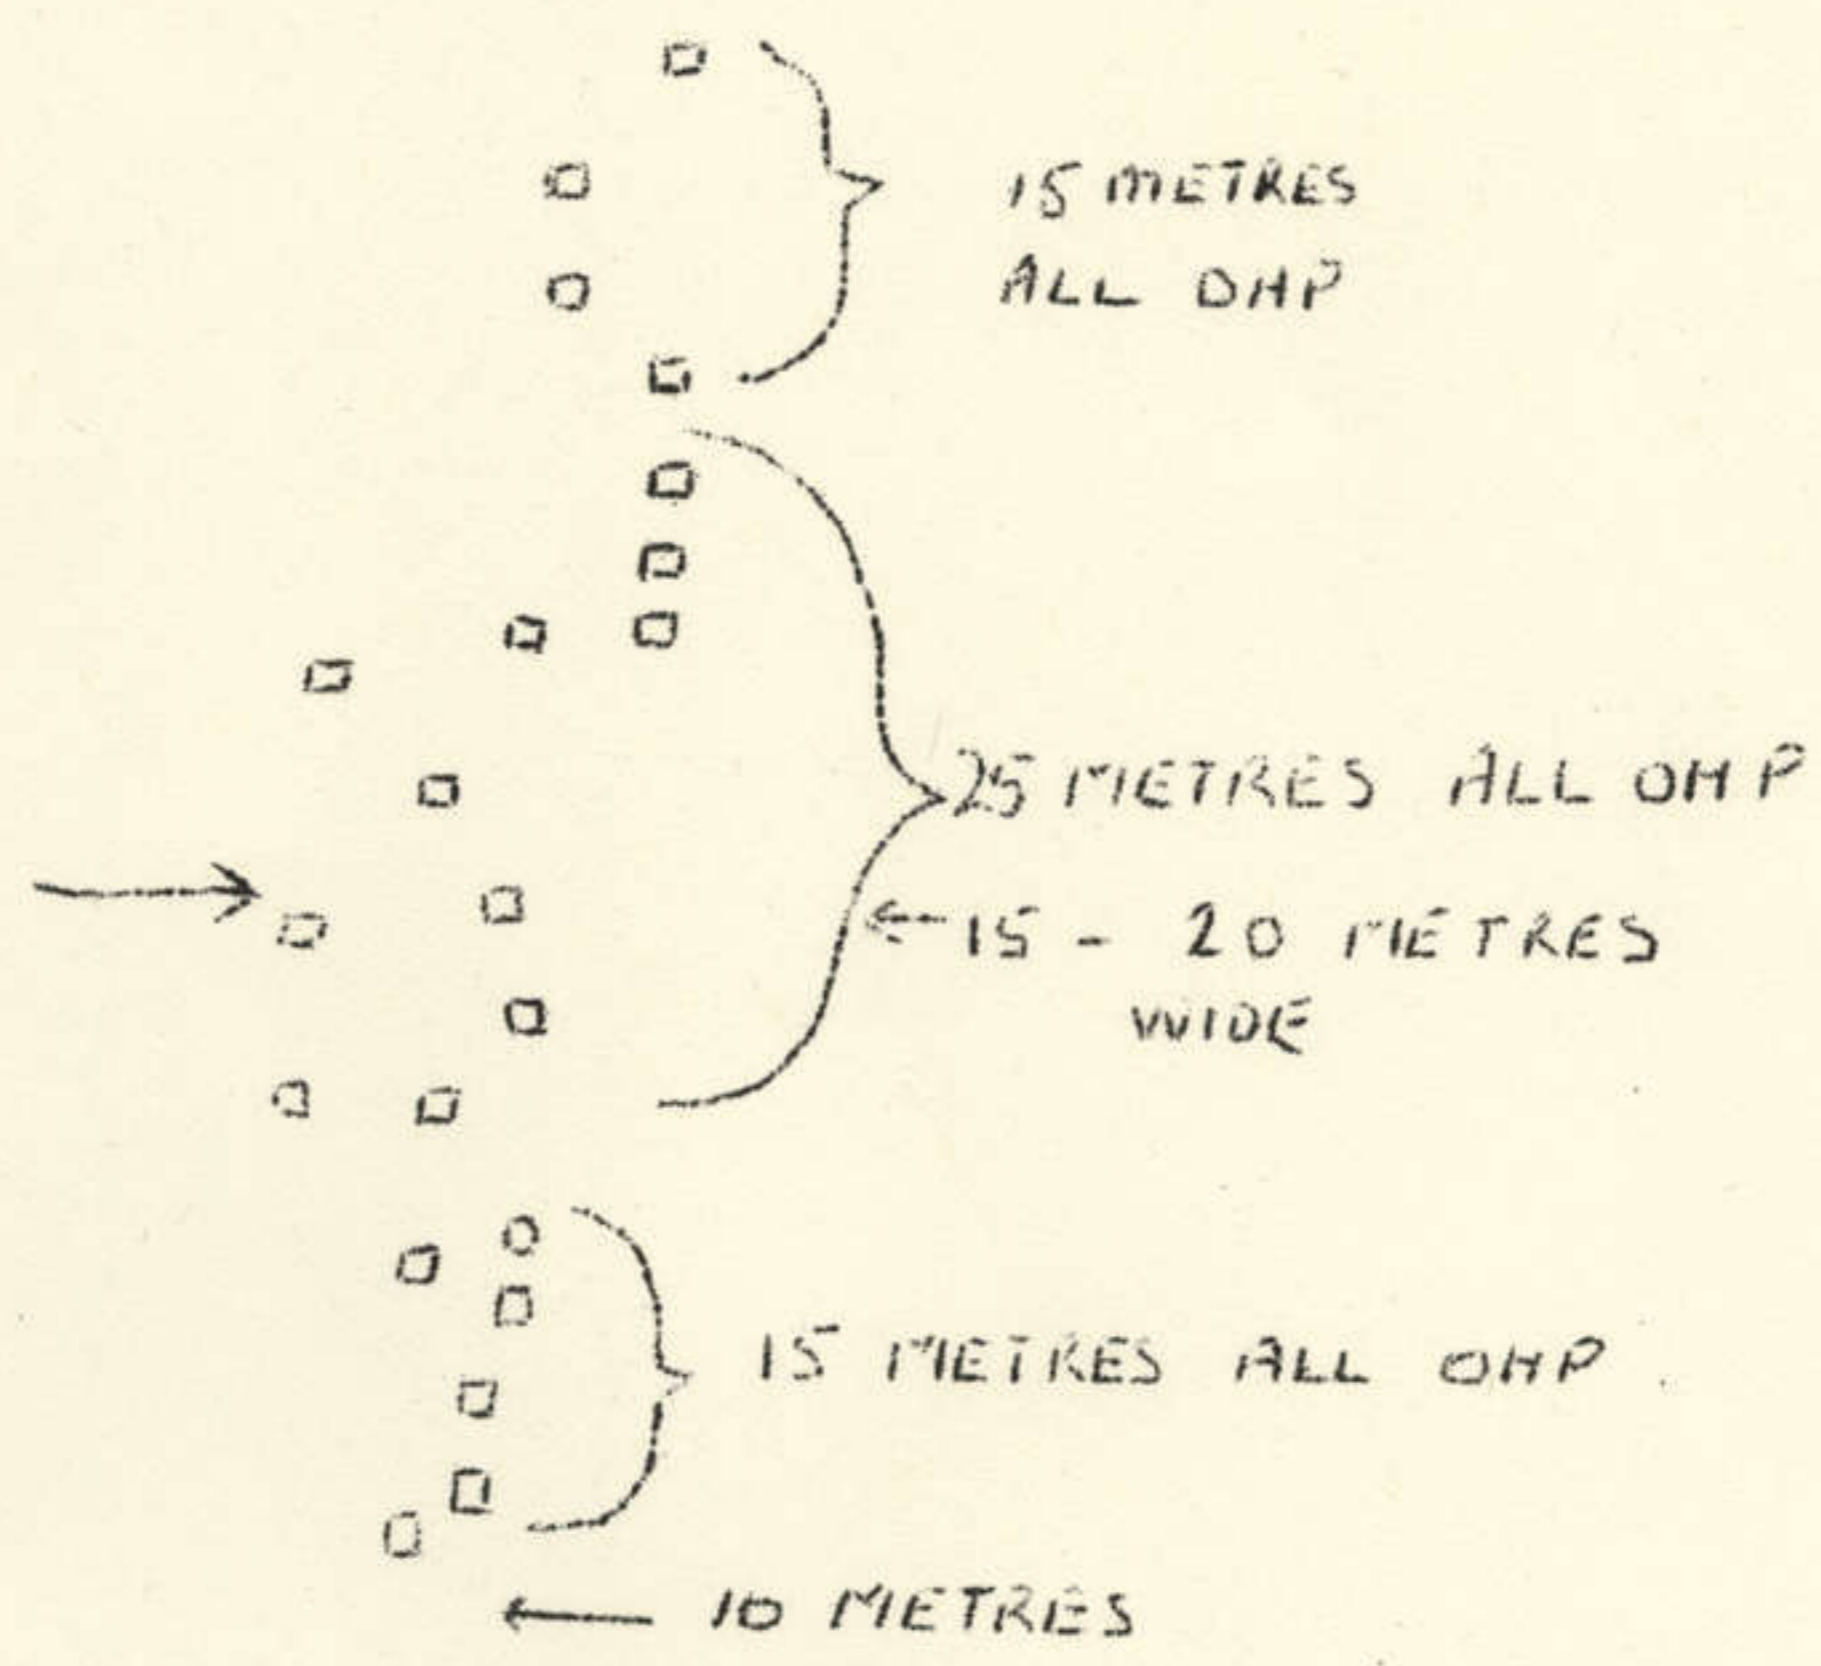 15 METRES
ALL OHP
25 METRES ALL OHP
15 - 20 METRES
WIDE
15 METRES ALL OHP
10 METRES